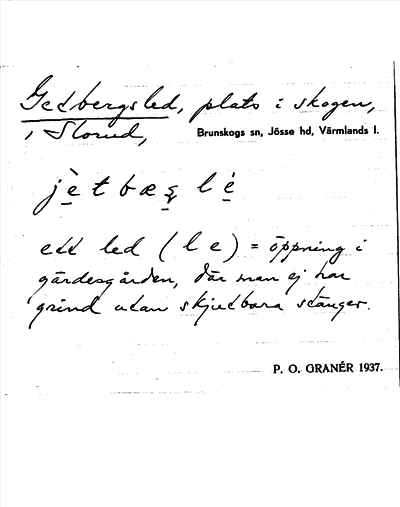 Getbergsled, plats i skogen,
i Storud,
Brunskogs sn, Jösse hd, Värmlands l.
jètbæs̨ lé
ett led (le) = öppning i
gärdesgården, där man ej har
grind utan skjutbara stänger.
P. O. GRANÉR 1937.